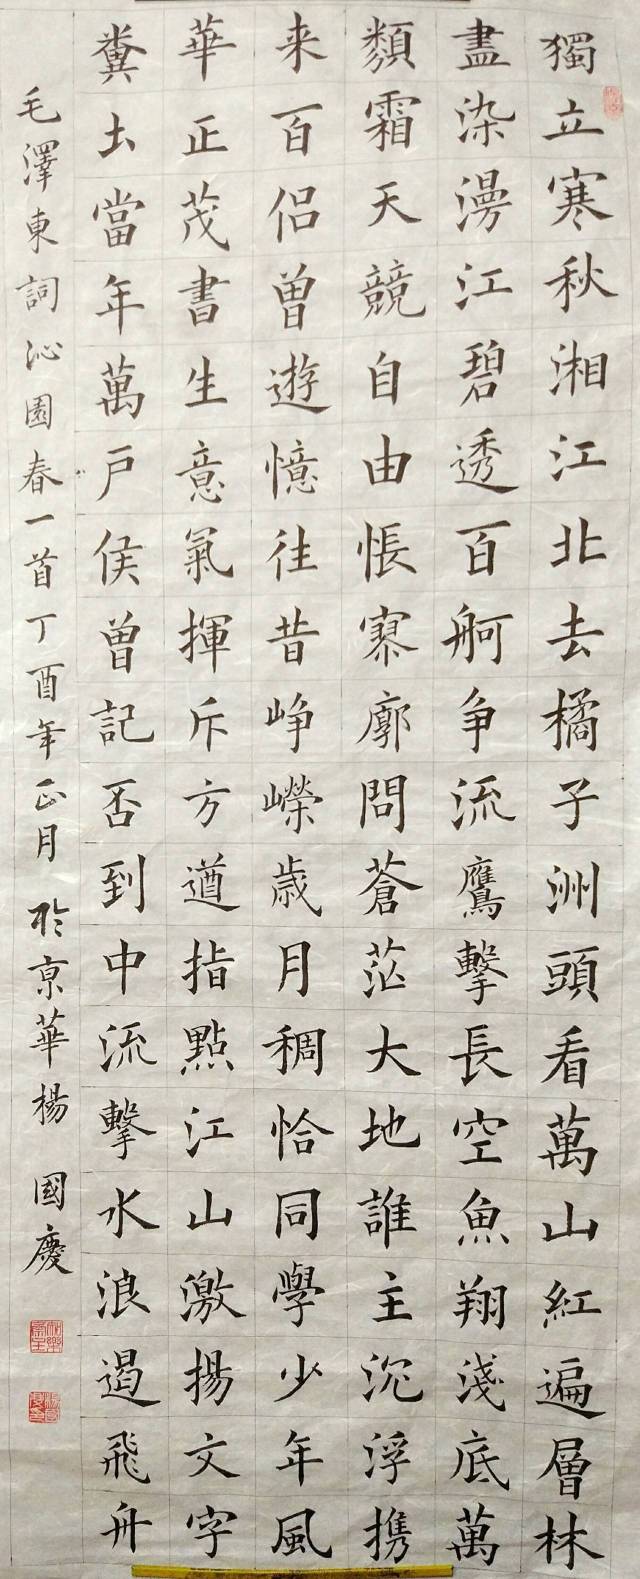 獨立寒秋湘江北去橘子洲頭看萬山紅遍層林
盡染漫江碧透百舸争流鷹擊長空魚翔淺底萬
類霜天競自由悵寥廓問蒼茫大地誰主沉浮携
来百侣曾遊憶往昔峥嶸歲月稠恰同學少年風
華正茂書生意氣揮斥方遒指點江山激揚文字
糞土當年萬户侯曾記否到中流擊水浪遏飛舟
毛澤東詞沁園春一首丁酉年正月於京華楊國慶